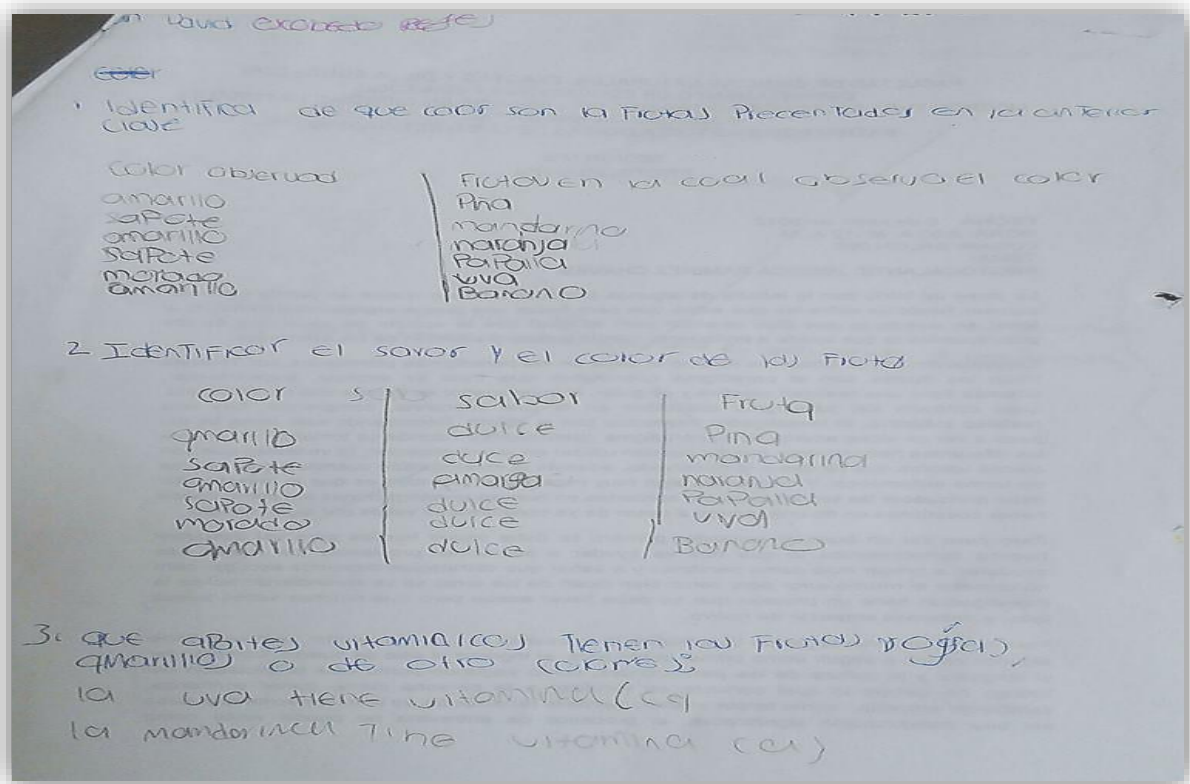 David
color
1 Identifica de que color son la Frutas Precentadas en la anterior
clase
color observad | Frutov en la cual observo el color
amarillo | Piña
sapote | mandarina
amarillo | naranja
sapote | Papalla
morado | uva
amarillo | Banano
2 Identificar el savor y el color de las Frutas
color s | sabor | Fruta
amarillo | dulce | Pina
sapote | duce | mandarina
amarillo | amarga | naranja
sapote | dulce | Papalla
morado | dulce | uva
amarillo | dulce | Banano
3. que aportes vitaminicos Tienen las Frutas
amarillas o de otro colores
la uva tiene vitamina
la mandarina Tine vitamina (a)